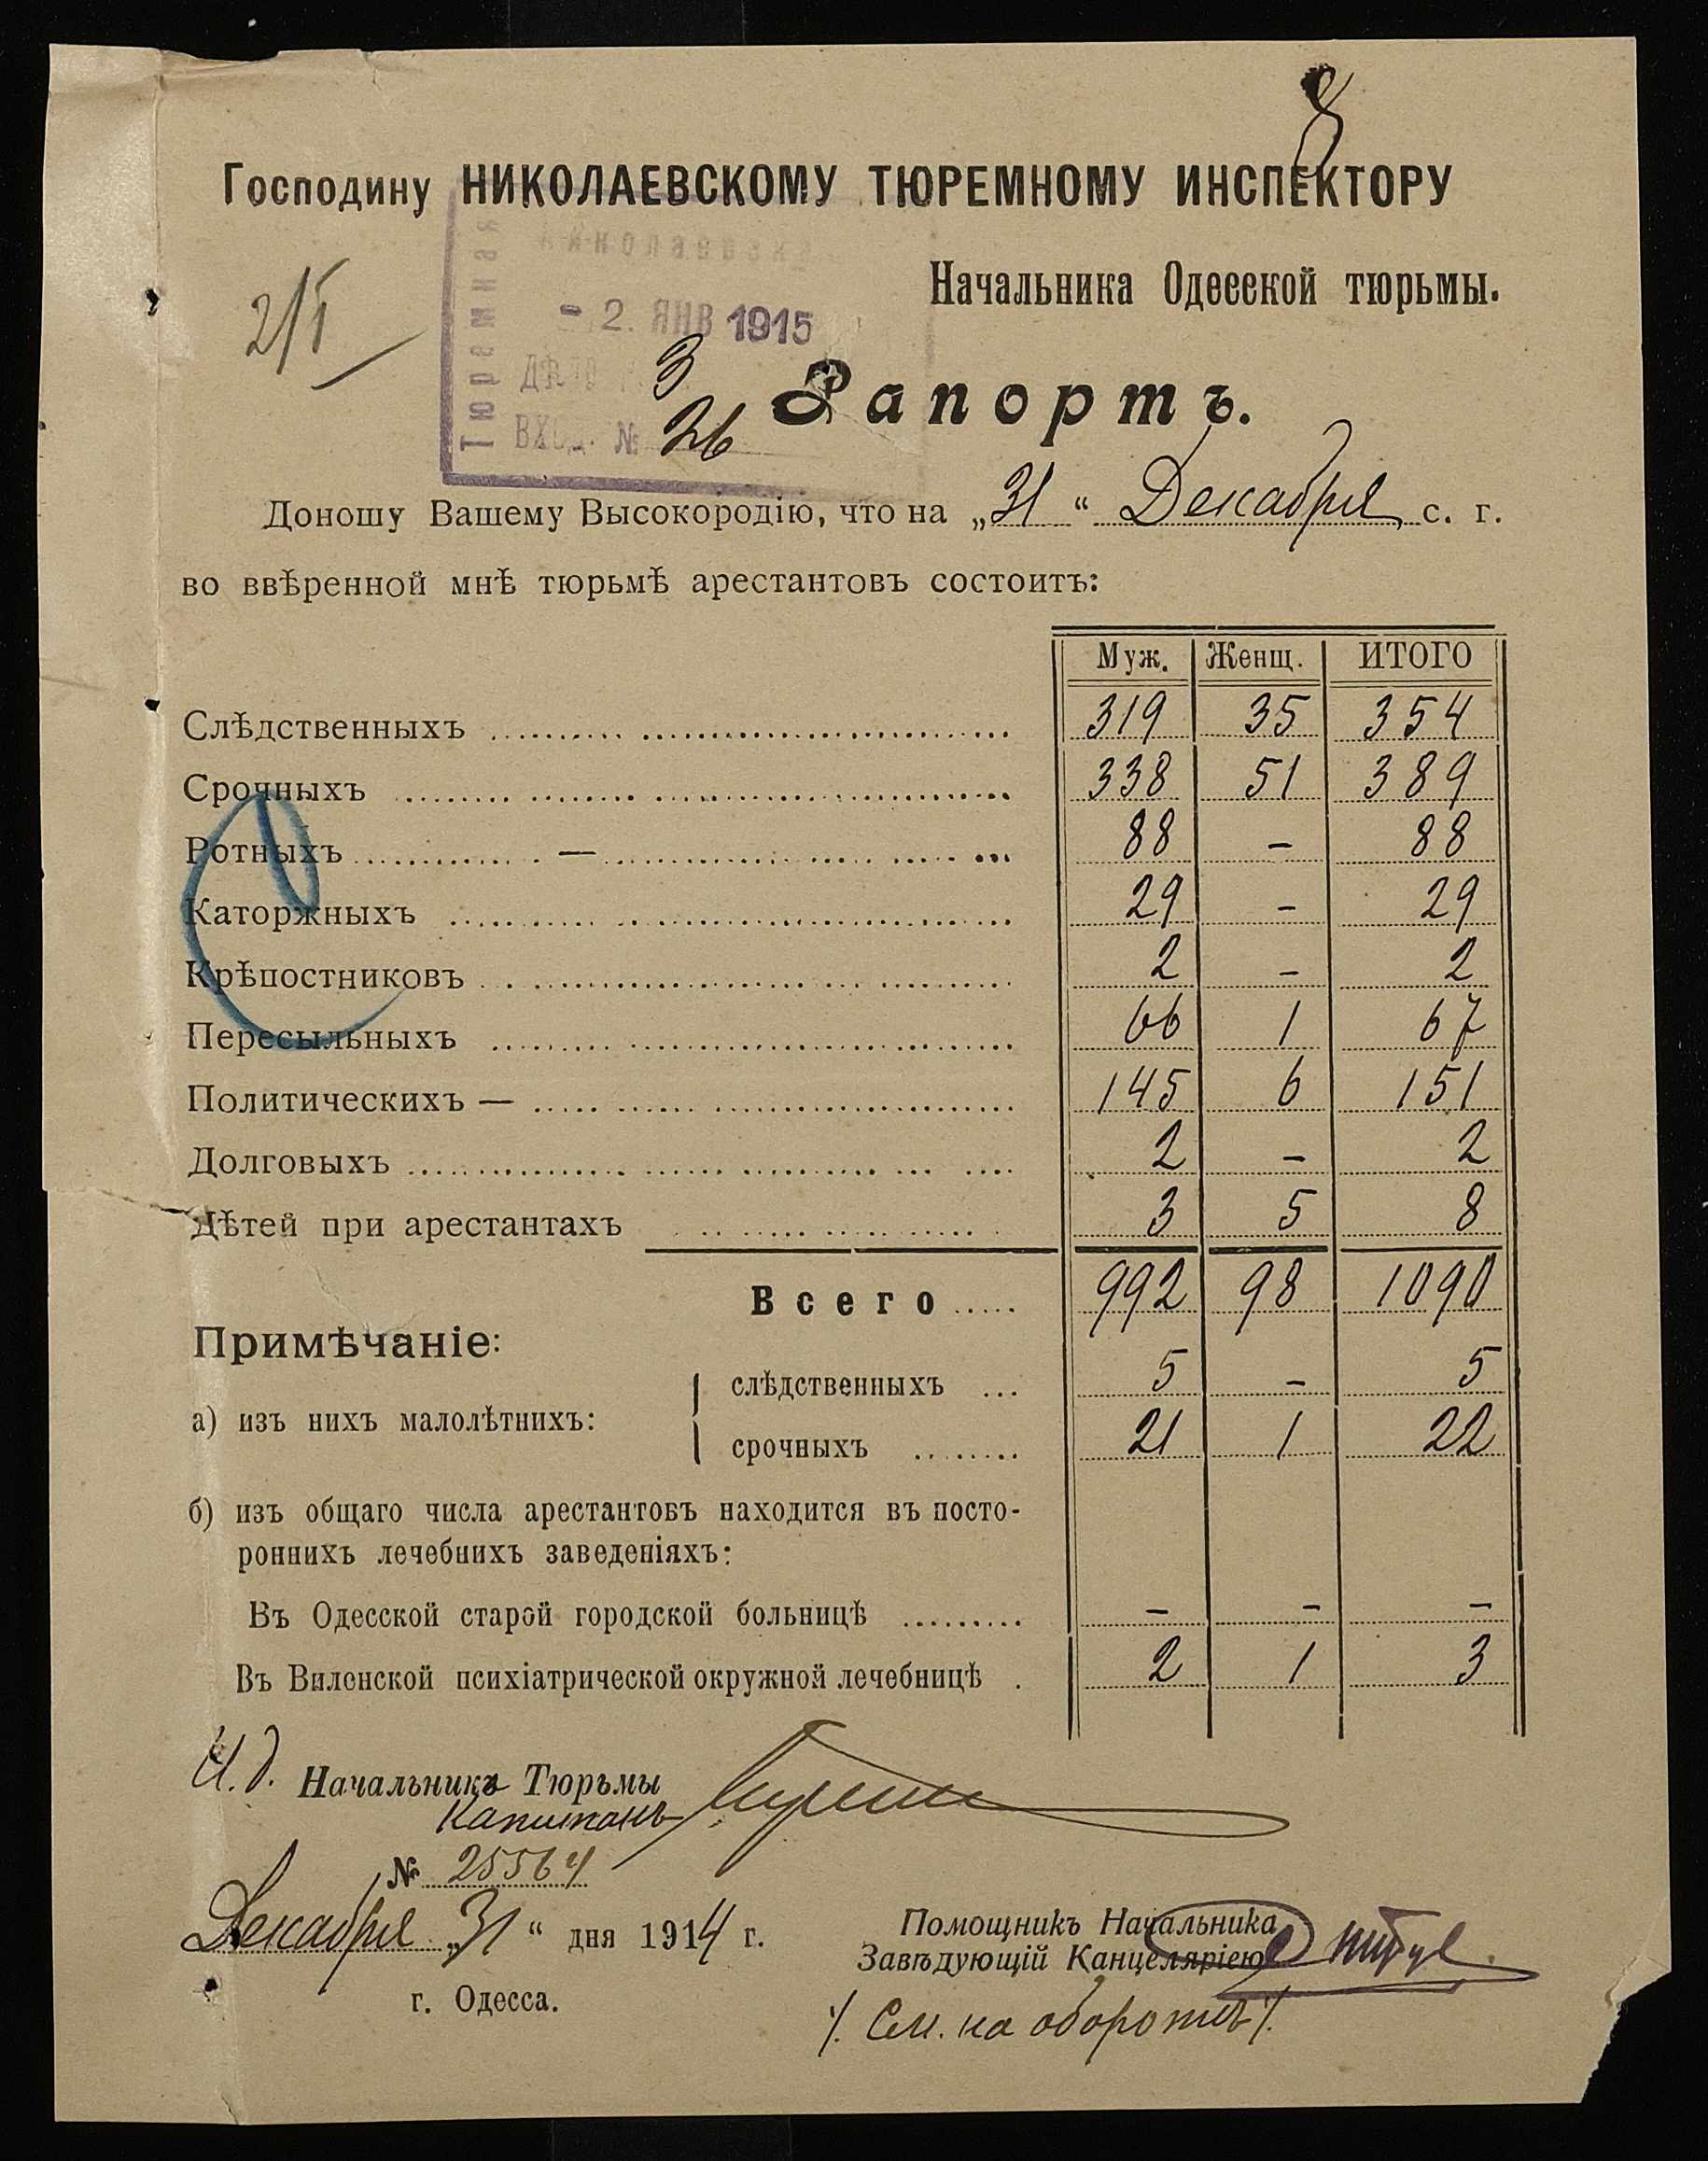 Господину НИКОЛАЕВСКОМУ ТЮРЕМНОМУ ИНСПЕКТОРУ
Николаевска
Тюремная
Начальника Одесской тюрьмы.
2/I
- 2. ЯНВ 1915
ДѢЛО 3
ВХОД. № 26
Рапортъ.
Доношу Вашему Высокородію, что на „31“ Декабря с. г.
во ввѣренной мнѣ тюрьмѣ арестантовъ состоитъ:
Муж. Женщ. ИТОГО
Слѣдственныхъ 319 35 354
Срочныхъ 338 51 389
Ротныхъ — 88 - 88
Каторжныхъ 29 - 29
Крѣпостниковъ 2 - 2
Пересыльныхъ 66 1 67
Политическихъ — 145 6 151
Долговыхъ 2 - 2
Дѣтей при арестантахъ 3 5 8
Всего 992 98 1090
Примѣчаніе:
слѣдственныхъ 5 - 5
а) изъ нихъ малолѣтнихъ:
срочныхъ 21 1 22
б) изъ общаго числа арестантовъ находится въ посто-
роннихъ лечебнихъ заведеніяхъ:
Въ Одесской старой городской больницѣ - - -
Въ Виленской психіатрической окружной лечебницѣ 2 1 3
И.д. Начальника Тюрьмы
Капитанъ
№ 25564
Декабря „31“ дня 1914 г.
г. Одесса.
Помощникъ Начальника
Завѣдующій Канцеляріею
/. См. на оборотѣ /.